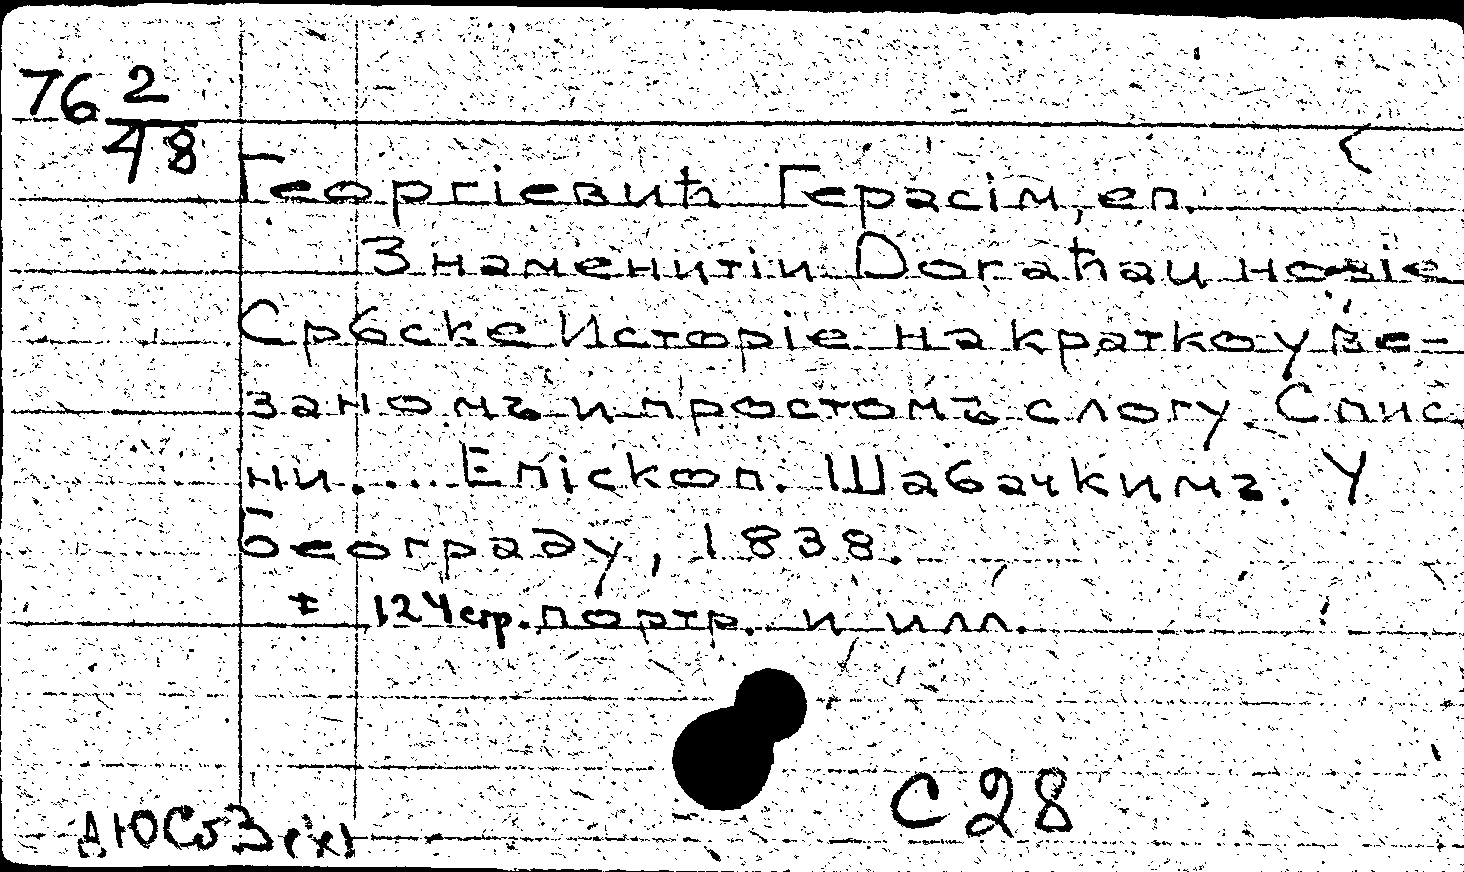 76 2/48
Георгіевић Герасім, еп.
Знаменитіи Dогађаи новіе
Србске Исторіе на кратко у ве-
заномъ и простомъ слогу. Спис.
ни..... Епіскоп. Шабачкимъ. У
Београду, 1838.
± 124 стр. портр. и илл.
С28